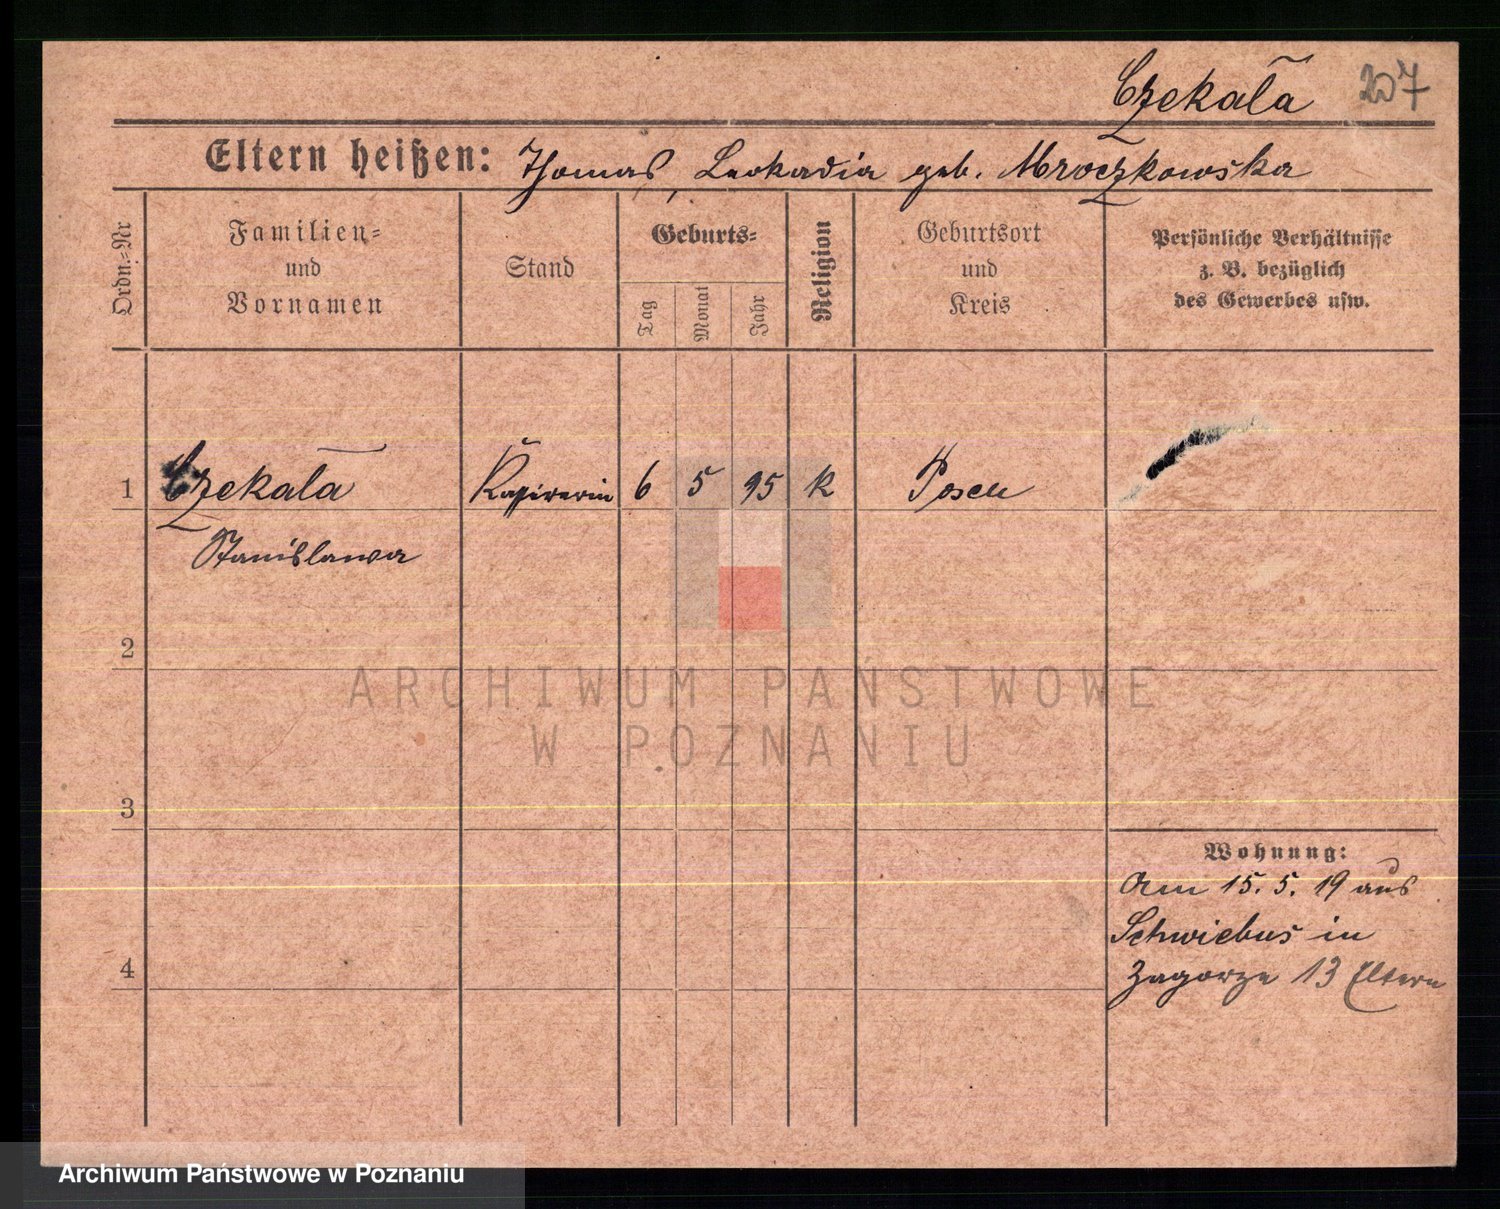 Czekała 207
Eltern heißen: Thomas, Leokadia geb. Mroczkowska
Ordn.=Nr
Familien=
und
Vornamen
Stand
Geburts=
Tag
Monat
Jahr
Religion
Geburtsort
und
Kreis
Persönliche Verhältnisse
z. B. bezüglich
des Gewerbes usw.
1 Czekała 6 5 95 k Posen
Stanislawa
2
ARCHIWUM PAŃSTWOWE
W POZNANIU
3
Wohnung:
Am 15. 5. 19 aus
Schwiebus in
4 Zagorze 13 Eltern
Archiwum Państwowe w Poznaniu